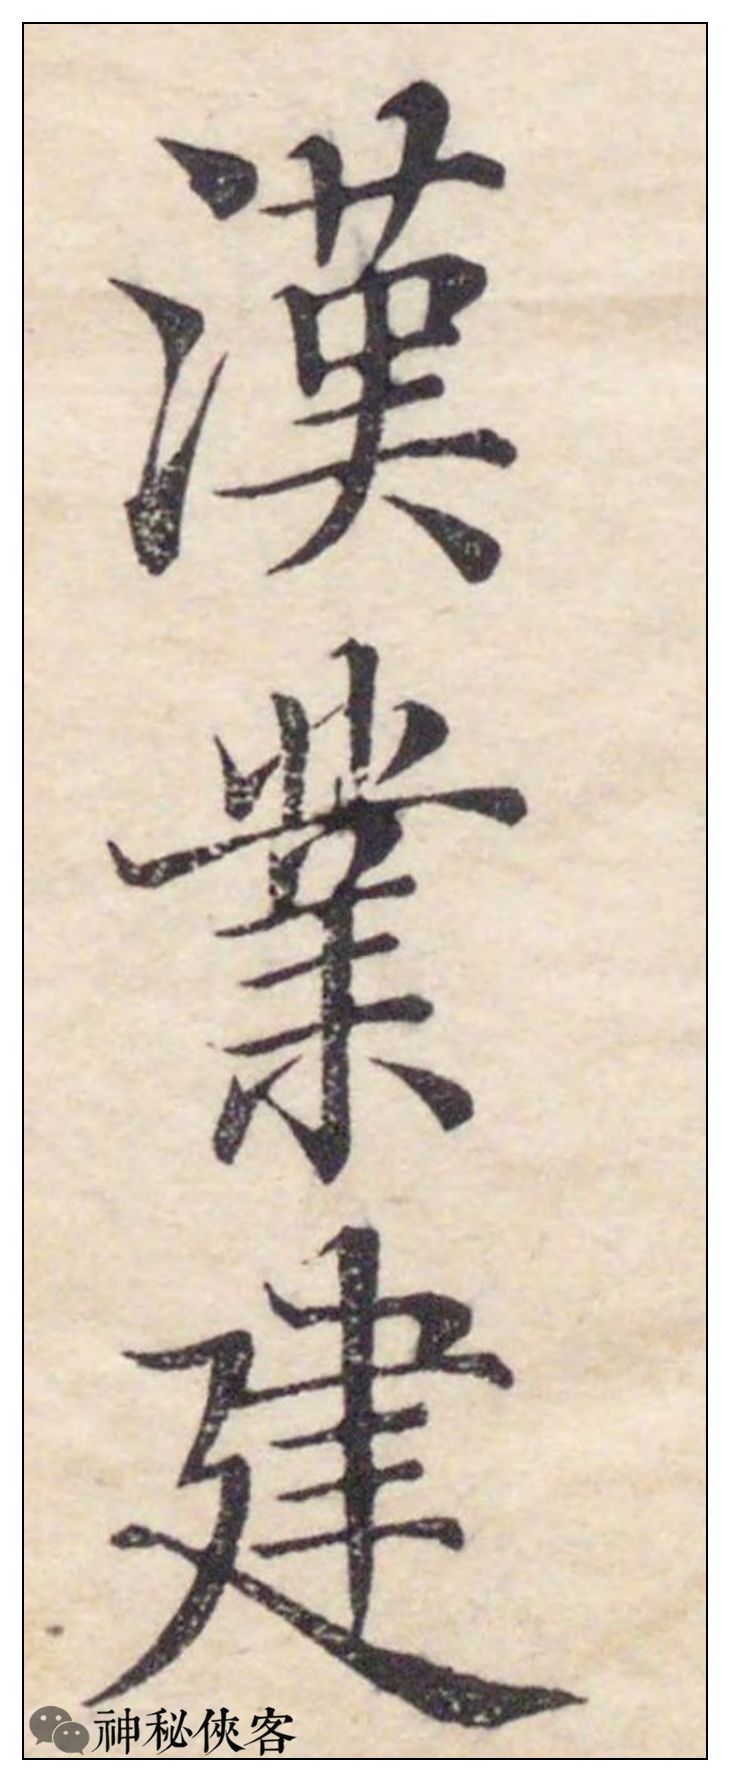 漢業建
神秘俠客